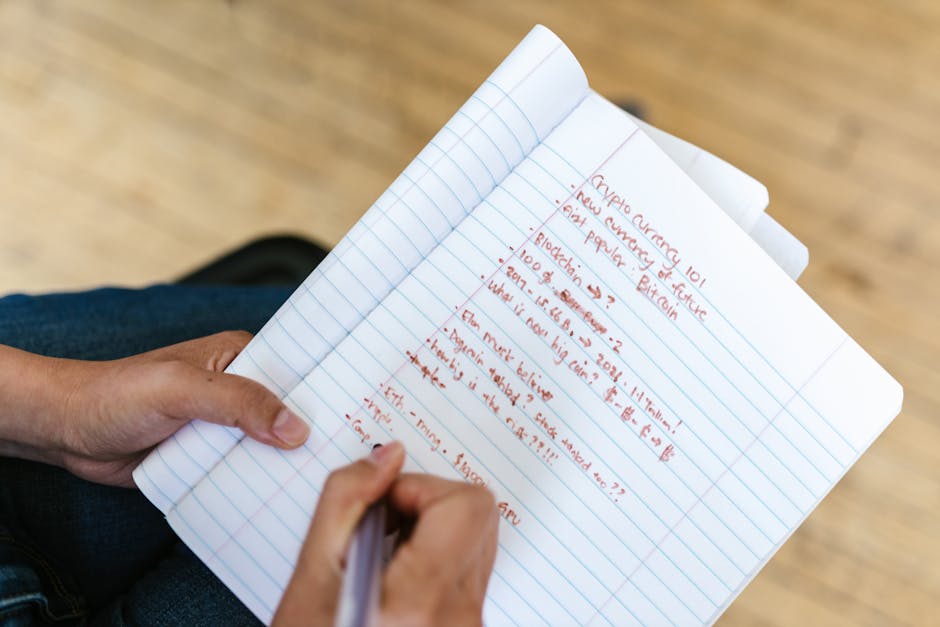 Crypto Currency 101
· New currency of future
· First popular : Bitcoin
· Blockchain → ?
· 100%.
· 2017. 15.66B. → 2021. 1.1 Trillion!
· What is next big coin? $-$-$→$
· Elon Musk believes
· Dogecoin tanked? Stock tanked too??
· how big is the risk??!!
· Eth. - mining - $10,000 GPU
· Crypto